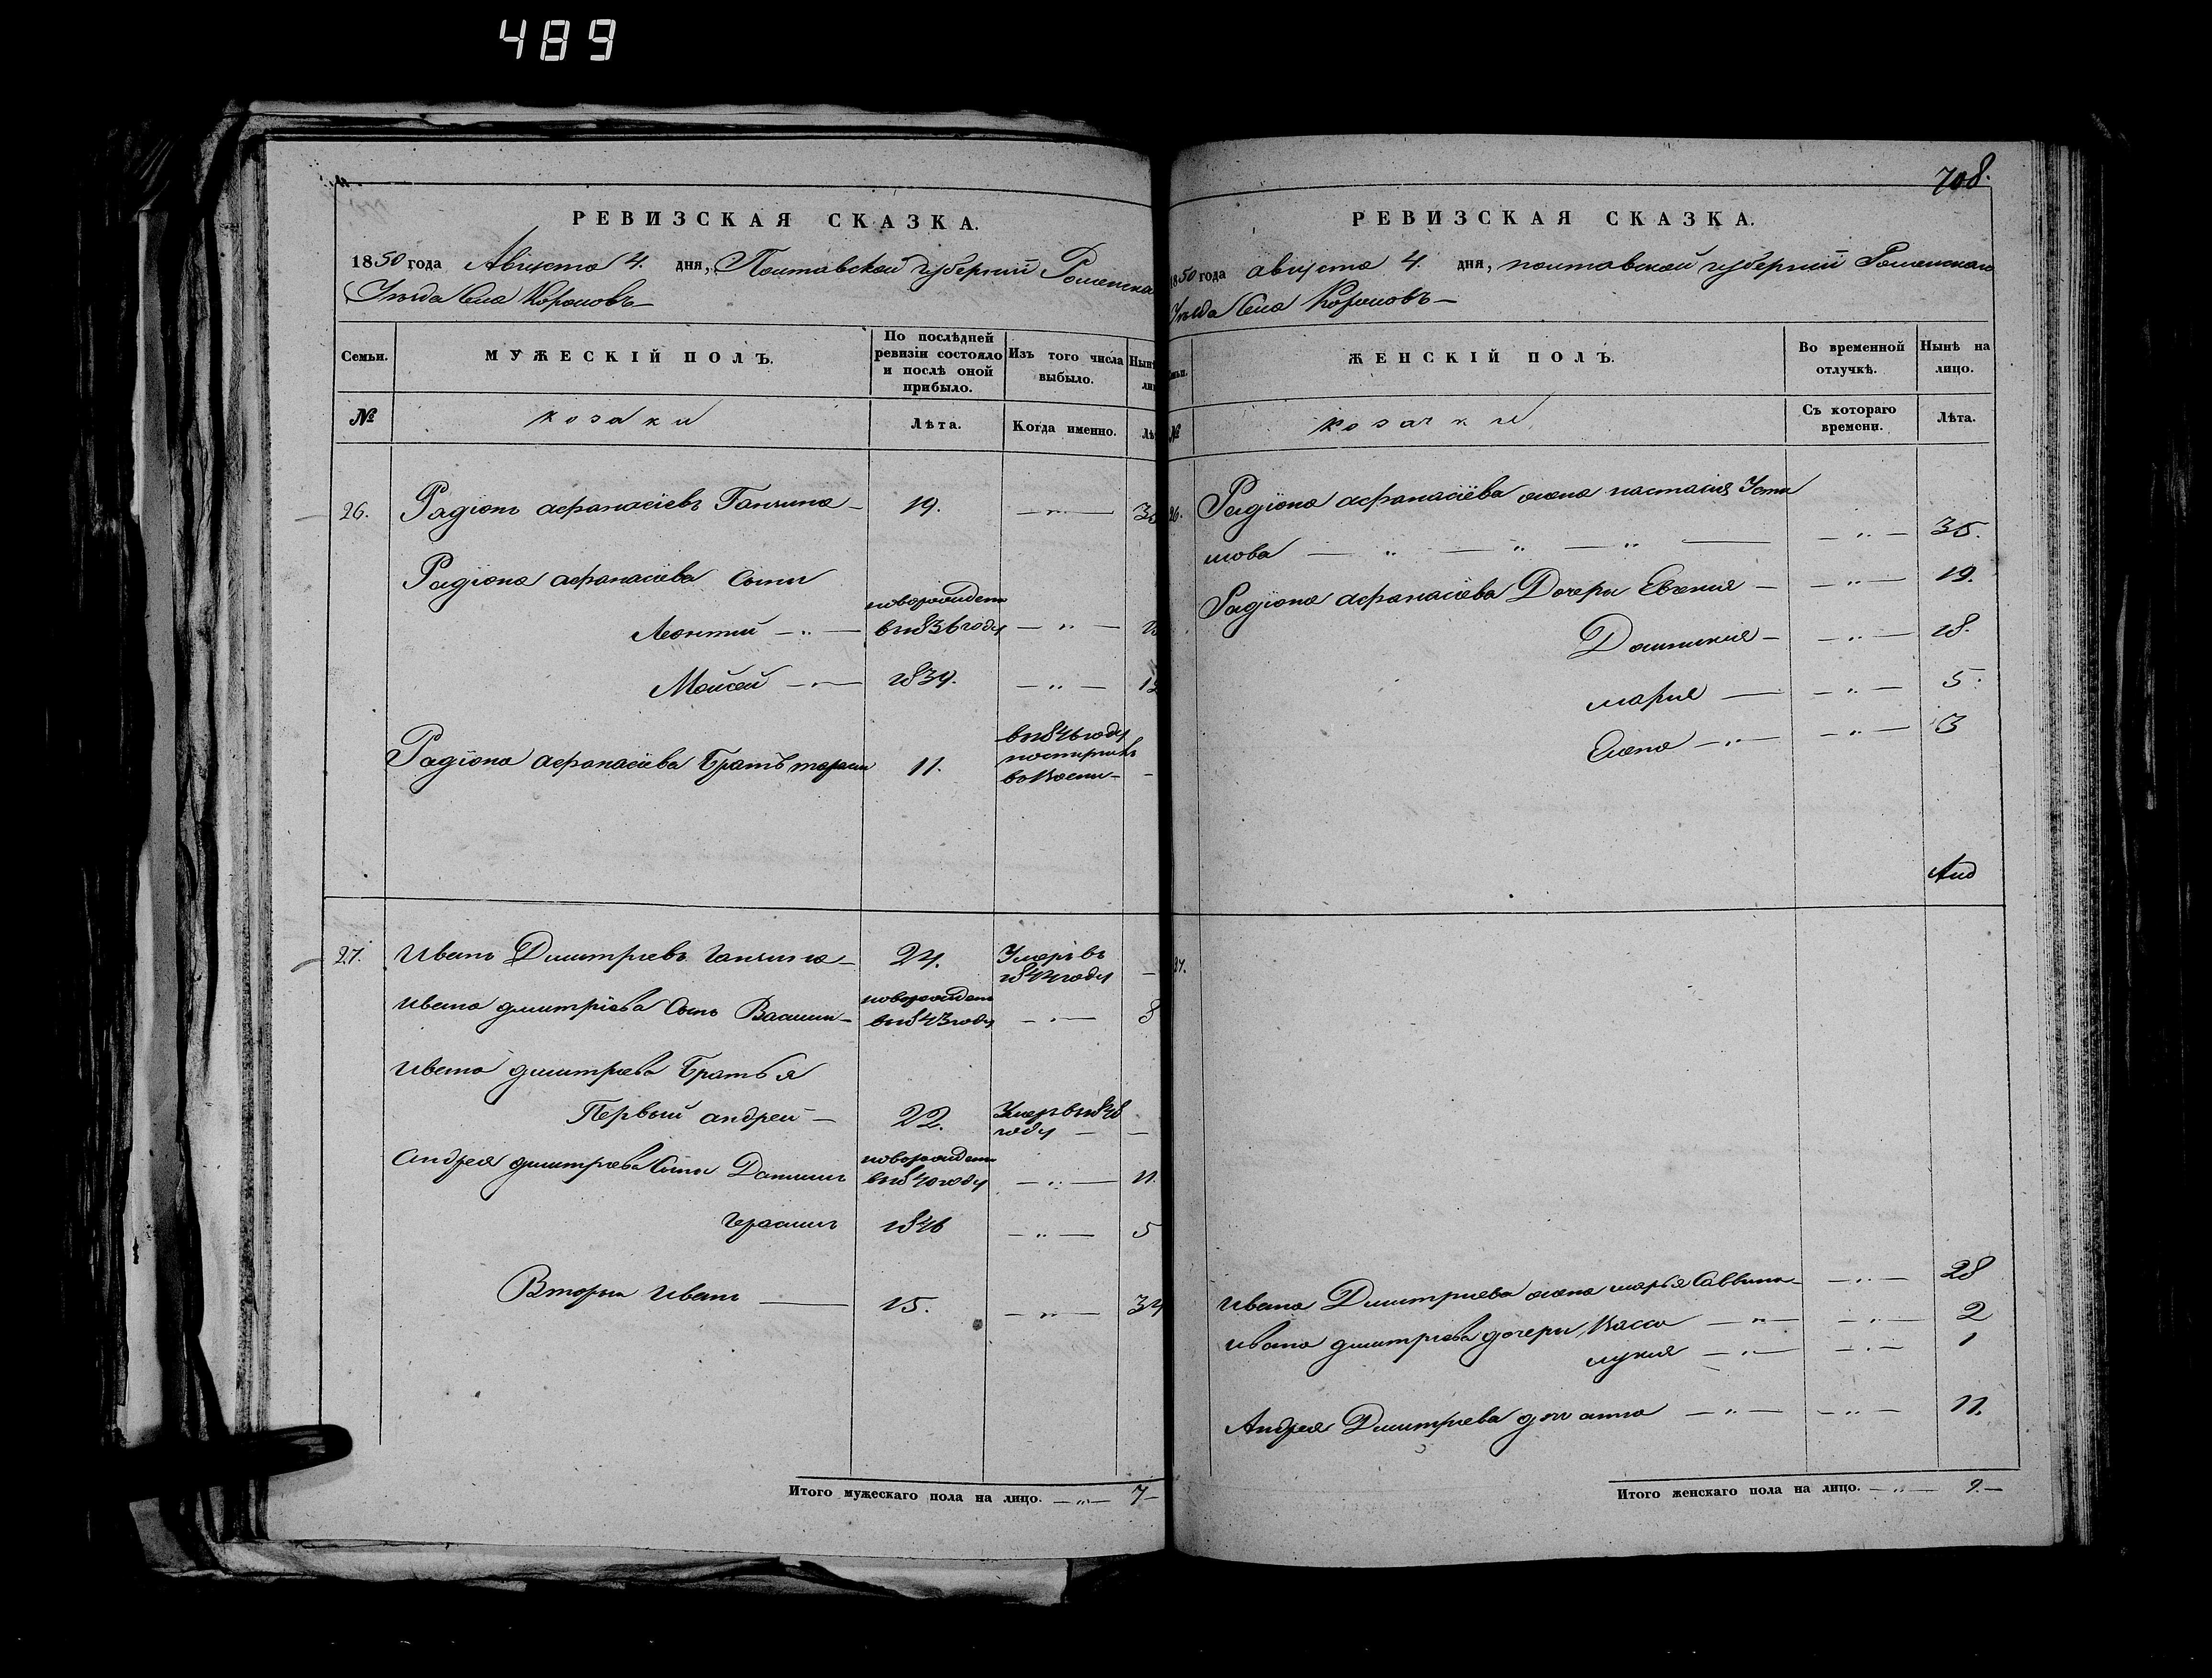 489
РЕВИЗСКАЯ СКАЗКА.
1850 года Августа 4. дня, Полтавской губернии Роменска
Уезда Села Корововъ
Семьи.
МУЖЕСКІЙ ПОЛЪ.
По послѣдней
ревизіи состояло
и послѣ оной
прибыло.
Изъ того числа
выбыло.
Нын
ли
№
козаки
Лѣта.
Когда именно.
Лѣ
26. Радіонъ афанасіевъ 19. 3
Радіона афанасіева Сыны
новорожден
Леонтій в 1836 году
Моисей 1839. 1
в 1846 году
Радіона афанасіева Братъ тарасъ 11.
27. Иванъ Дмитріевъ 24. Умеръ въ
1844 году
новорожден
Ивана дмитріева Сынъ Василій в 1843 году 8
Ивана дмитріева Братья
Первый андрей 22. Умеръ в 1848
году
новорожден
Андрея дмитріева Сыны Даніилъ в 1840 году 11.
Герасимъ 1846 5
Вторый Иванъ 15. 34
Итого мужескаго пола на лицо. 7
708.
РЕВИЗСКАЯ СКАЗКА.
1850 года августа 4. дня, полтавской губерніи Роменскаго
Уезда Села Корововъ
ЖЕНСКІЙ ПОЛЪ.
Во временной
отлучкѣ.
Нынѣ на
лицо.
№
козачки
Съ котораго
времени.
Лѣта.
26. Радіона афанасіева жена настасія Усти
мова 35.
Радіона афанасіева Дочери Евгенія 19.
Домникія 18.
марія 5.
Елена 3
27.
Ивана Дмитріева жена марья Саввина 28
Ивана дмитріева дочери Васса 2
лукія 1
Андрея Дмитріева дочь анна 11.
Итого женскаго пола на лицо. 9.